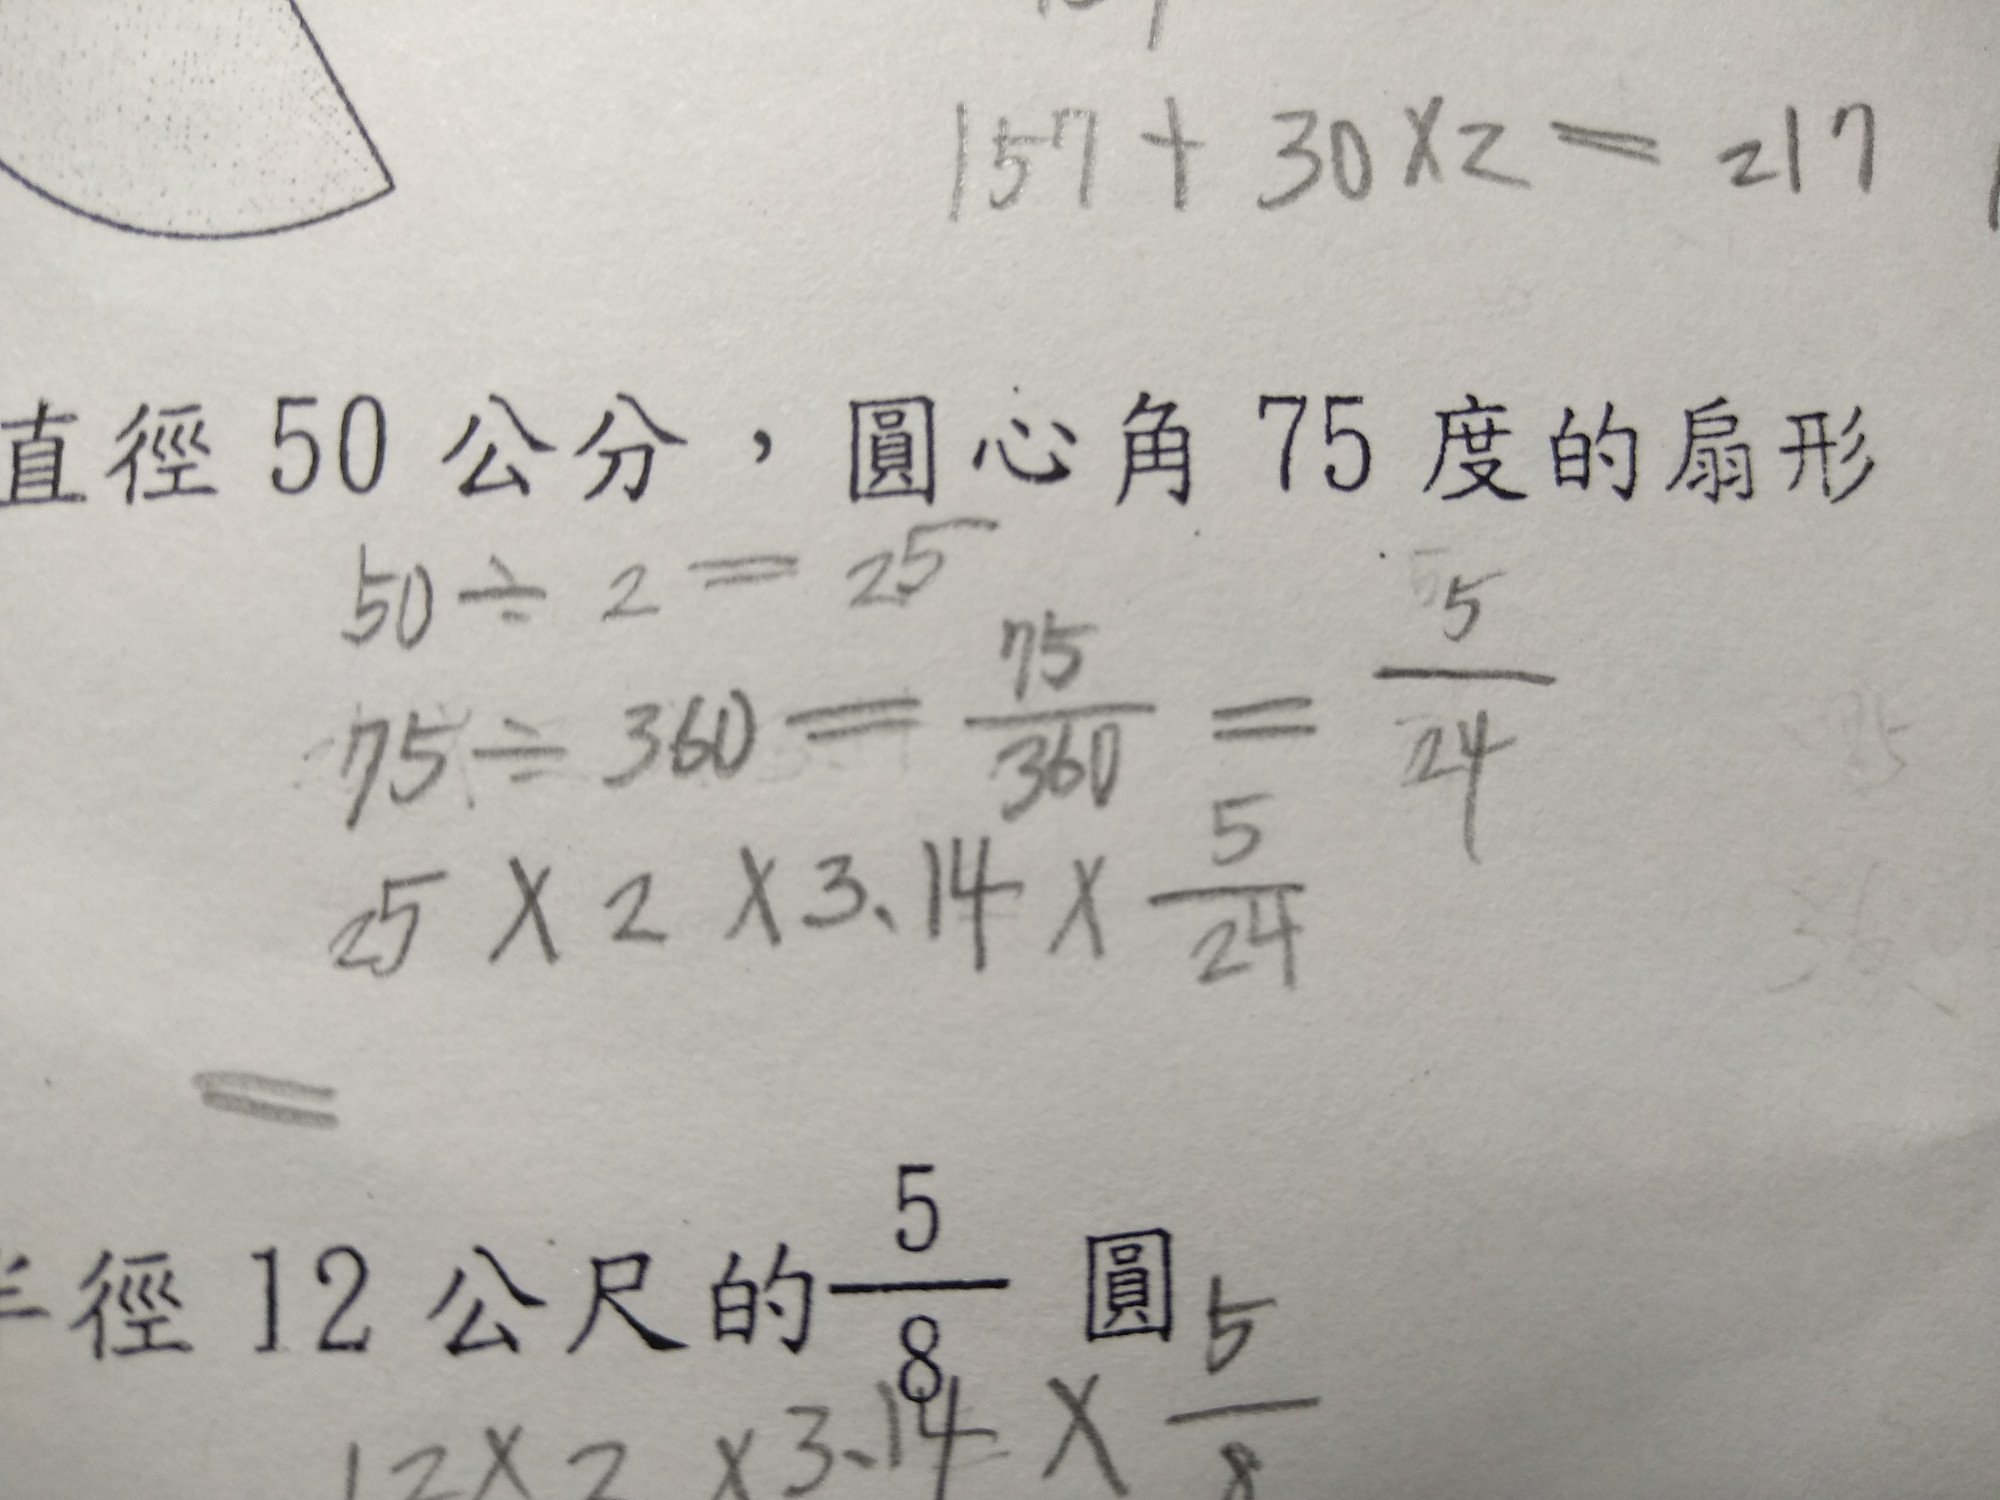 157 + 30 × 2 = 217
直徑 50 公分，圓心角 75 度的扇形
50 ÷ 2 = 25
75 ÷ 360 = 75/360 = 5/24
25 × 2 × 3.14 × 5/24
=
半徑 12 公尺的 5/8 圓
12 × 2 × 3.14 × 5/8